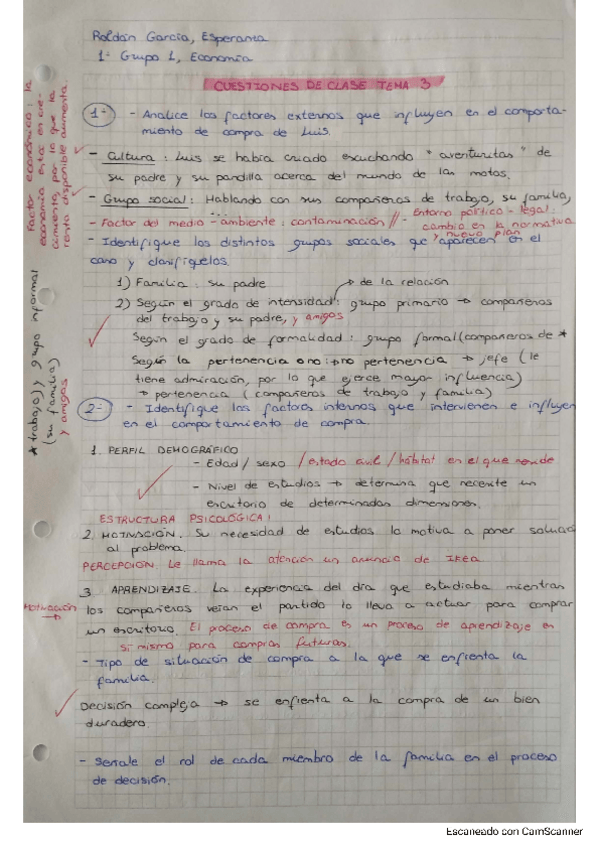 Roldán García, Esperanza
1º Grupo 1, Economía
CUESTIONES DE CLASE TEMA 3
1- - Analice los factores externos que influyen en el comporta-
miento de compra de Luis.
- Cultura : Luis se había criado escuchando "aventuritas" de
su padre y su pandilla acerca del mundo de las motos.
- Grupo social : Hablando con sus compañeros de trabajo, su familia,
- Factor del medio-ambiente : contaminación // - Entorno político-legal :
cambio en la normativa
y nuevo plan
- Identifique los distintos grupos sociales que aparecen en el
caso y clasifíquelos.
1) Familia : su padre
de la relación
2) Según el grado de intensidad : grupo primario → compañeros
del trabajo y su padre, y amigos
Según el grado de formalidad : grupo formal (compañeros de *
Según la pertenencia o no : no pertenencia → jefe (le
tiene admiración, por lo que ejerce mayor influencia)
→ pertenencia (compañeros de trabajo y familia)
Factor económico : la
economía está en cre-
cimiento, por lo que la
renta disponible aumenta.
* trabajo) y grupo informal
(su familia)
y amigos
2- - Identifique los factores internos que intervienen e influyen
en el comportamiento de compra.
1. PERFIL DEMOGRÁFICO
- Edad / sexo / estado civil / hábitat en el que reside
- Nivel de estudios → determina que necesite un
escritorio de determinadas dimensiones.
ESTRUCTURA PSICOLÓGICA :
2. MOTIVACIÓN. Su necesidad de estudios lo motiva a poner solución
al problema.
PERCEPCIÓN. Le llama la atención un anuncio de Ikea
3. APRENDIZAJE. La experiencia del día que estudiaba mientras
Motivación →
los compañeros veían el partido lo lleva a actuar para comprar
un escritorio. El proceso de compra es un proceso de aprendizaje en
sí mismo para compras futuras.
- Tipo de situación de compra a la que se enfrenta la
familia.
Decisión compleja → se enfrenta a la compra de un bien
duradero.
- Señale el rol de cada miembro de la familia en el proceso
de decisión.
Escaneado con CamScanner